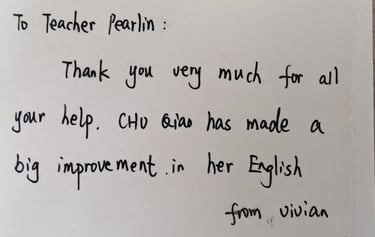 To Teacher Pearlin :
Thank you very much for all
your help. CHU Qiao has made a
big improvement in her English
from vivian